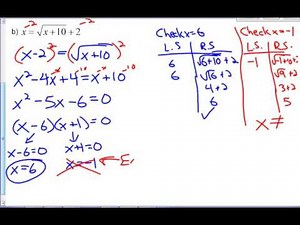 -2 -2
b) x = √x+10 + 2
(x-2)² = (√x+10)²
x² - 4x + 4 = x + 10
-x -10 -x -10
x² - 5x - 6 = 0
(x-6)(x+1) = 0
x-6=0 x+1=0
x=6 x=-1 ← E
Check x=6
L.S R.S
6 √6+10 + 2
6 √16 + 2
6 4+2
6
✓
Check x=-1
L.S. R.S.
-1 √-1+10 +2
√9 + 2
3+2
5
x ≠